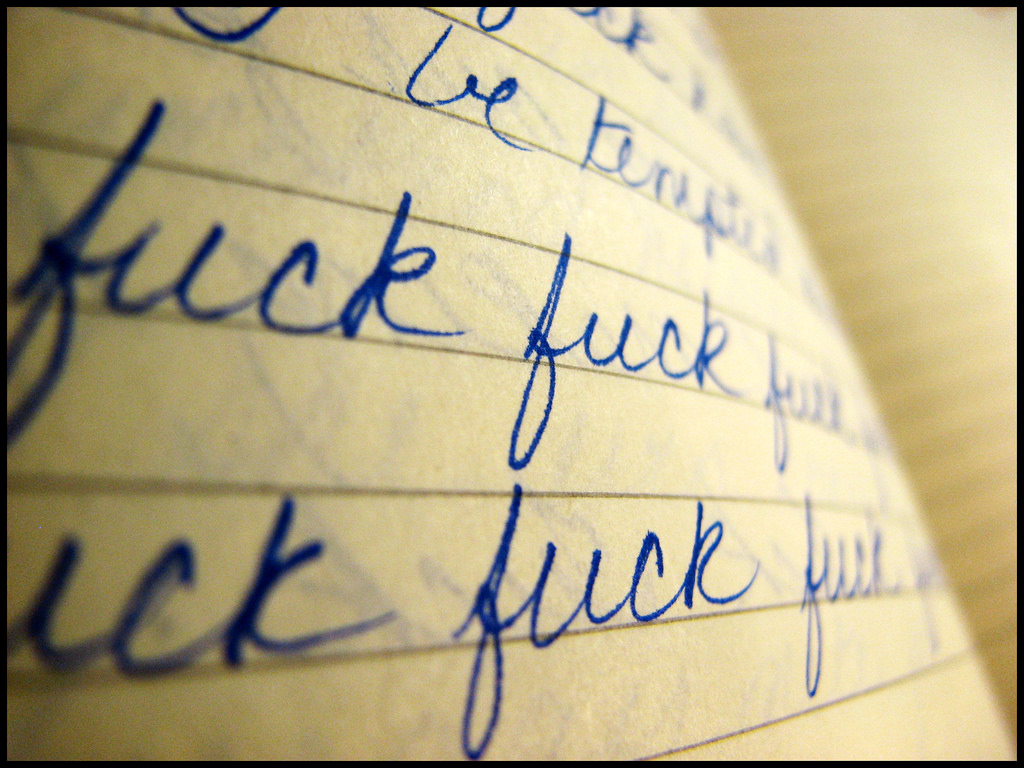 be tempted
fuck fuck fuck
fuck fuck